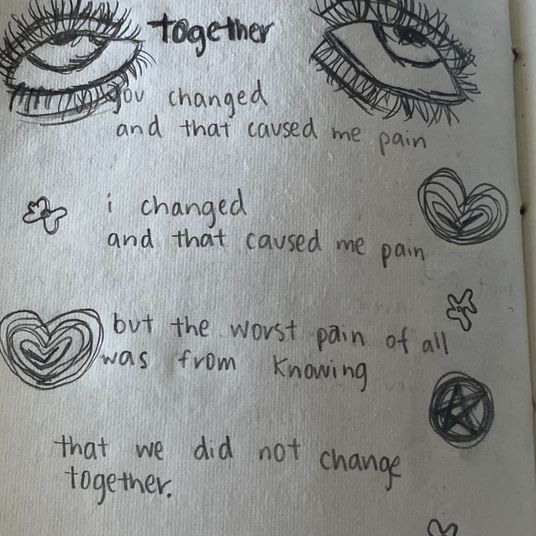 together
you changed
and that caused me pain
i changed
and that caused me pain
but the worst pain of all
was from knowing
that we did not change
together.